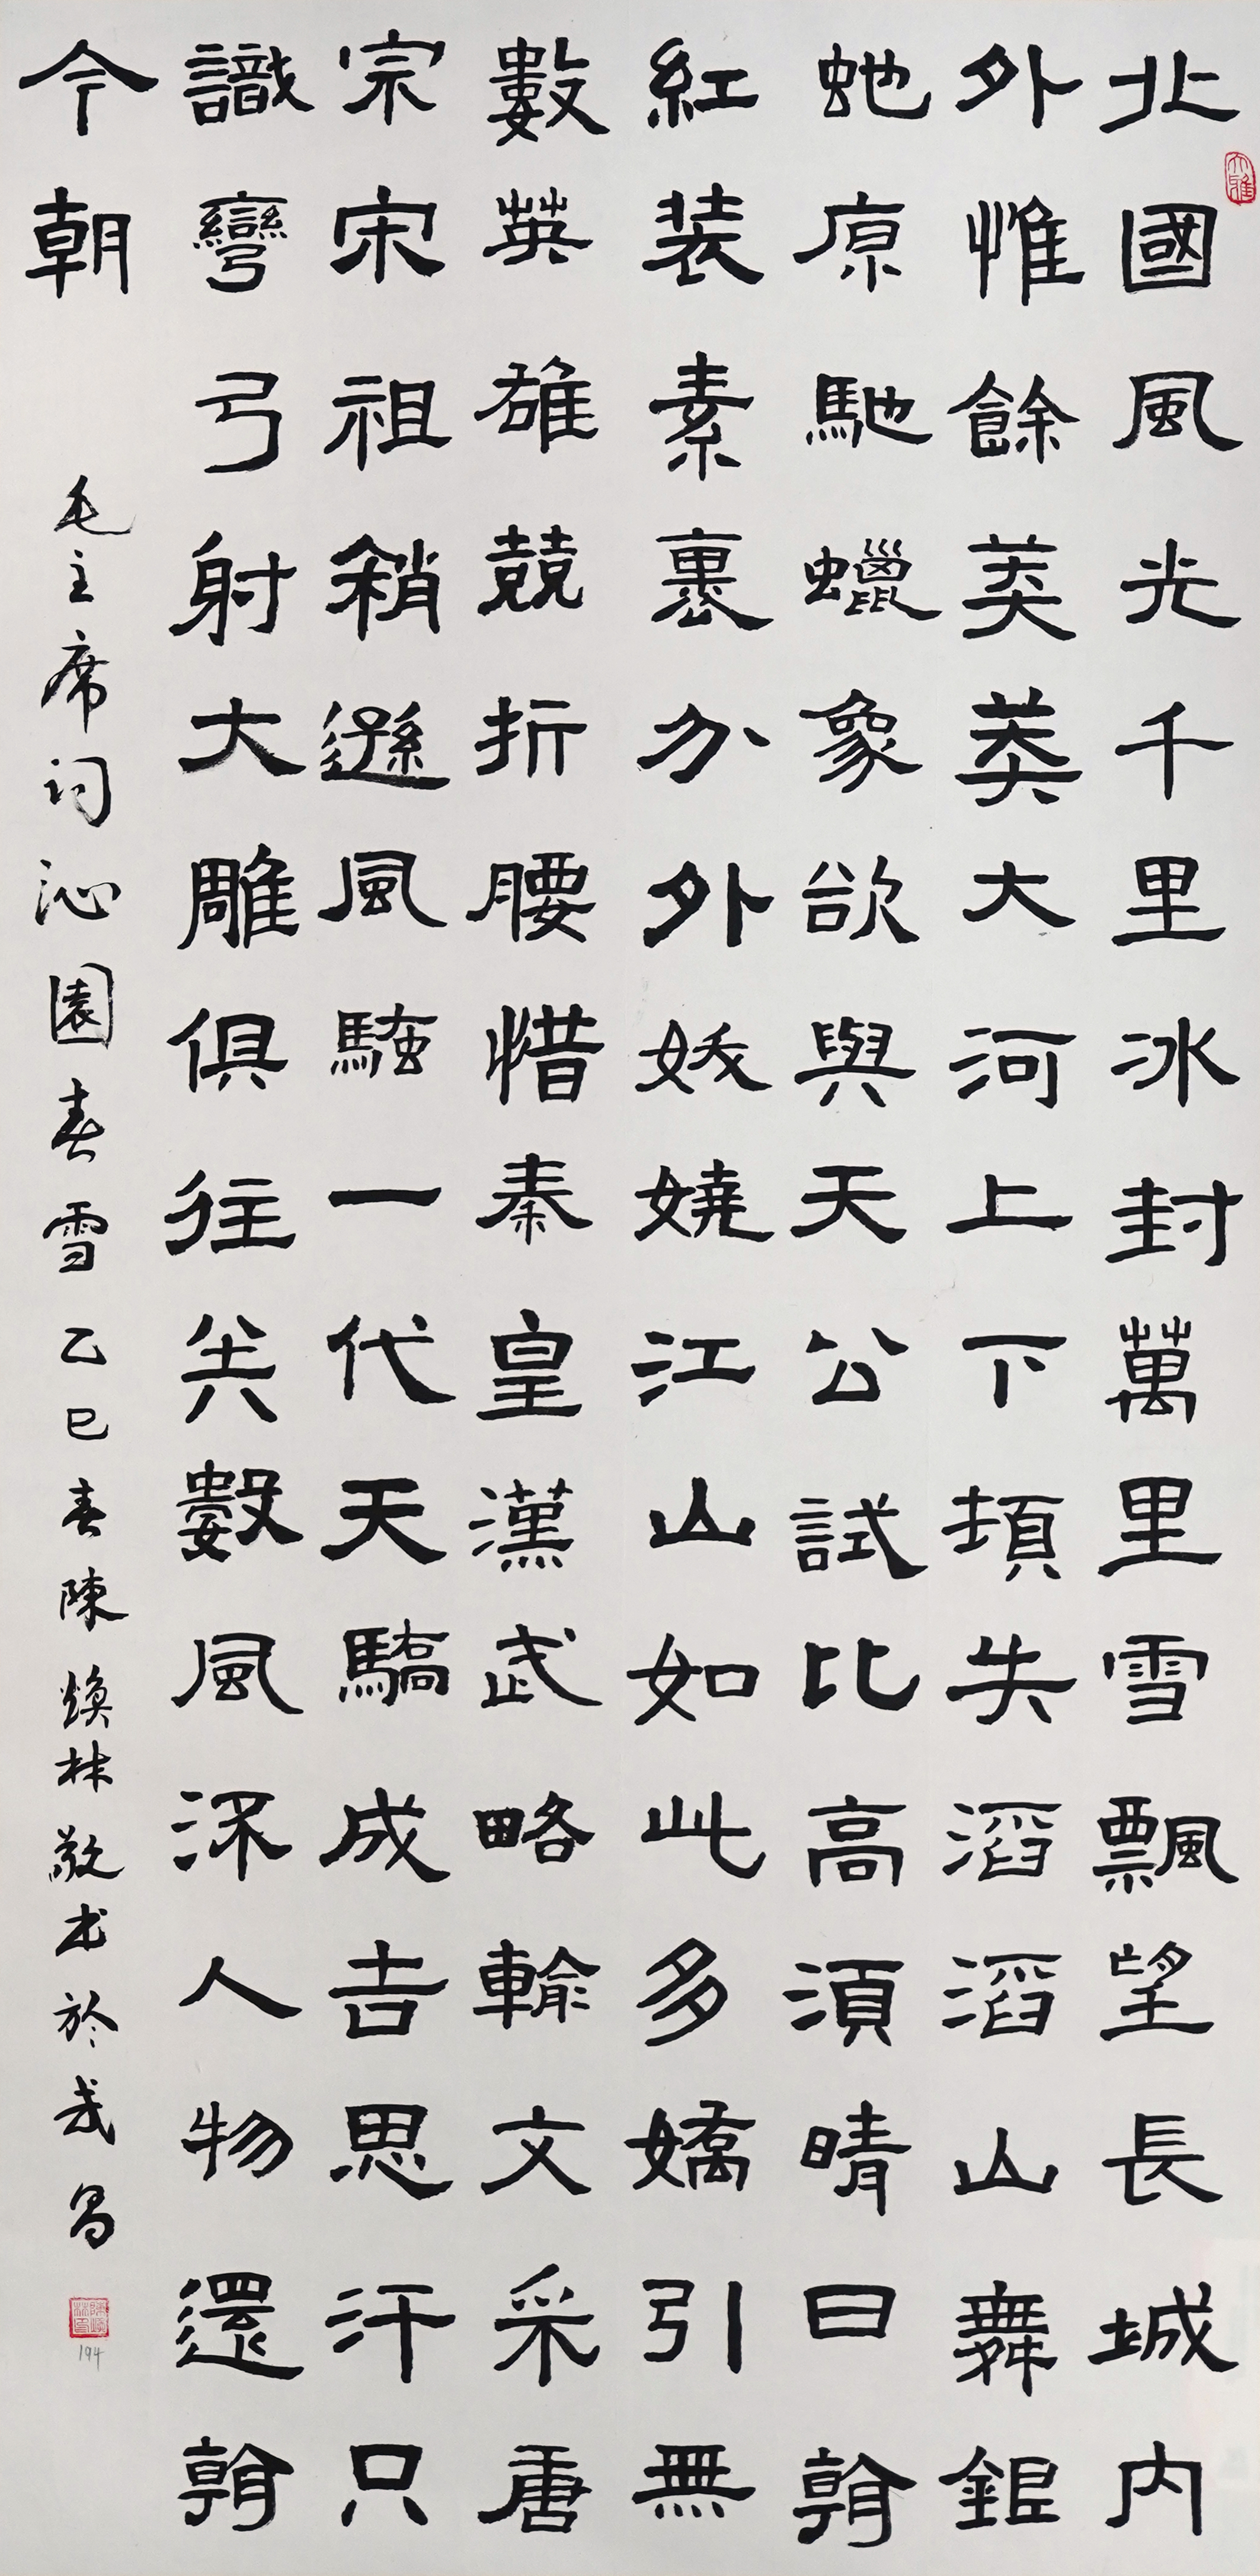 北國風光千里冰封萬里雪飄望長城内
外惟餘莽莽大河上下頓失滔滔山舞銀
蛇原馳蠟象欲與天公試比高須晴日看
紅装素裹分外妖嬈江山如此多嬌引無
數英雄競折腰惜秦皇漢武略輸文采唐
宗宋祖稍遜風騷一代天驕成吉思汗只
識彎弓射大雕俱往矣數風流人物還看
今朝
毛主席词沁園春雪乙巳春陳焕林敬书於武昌
194